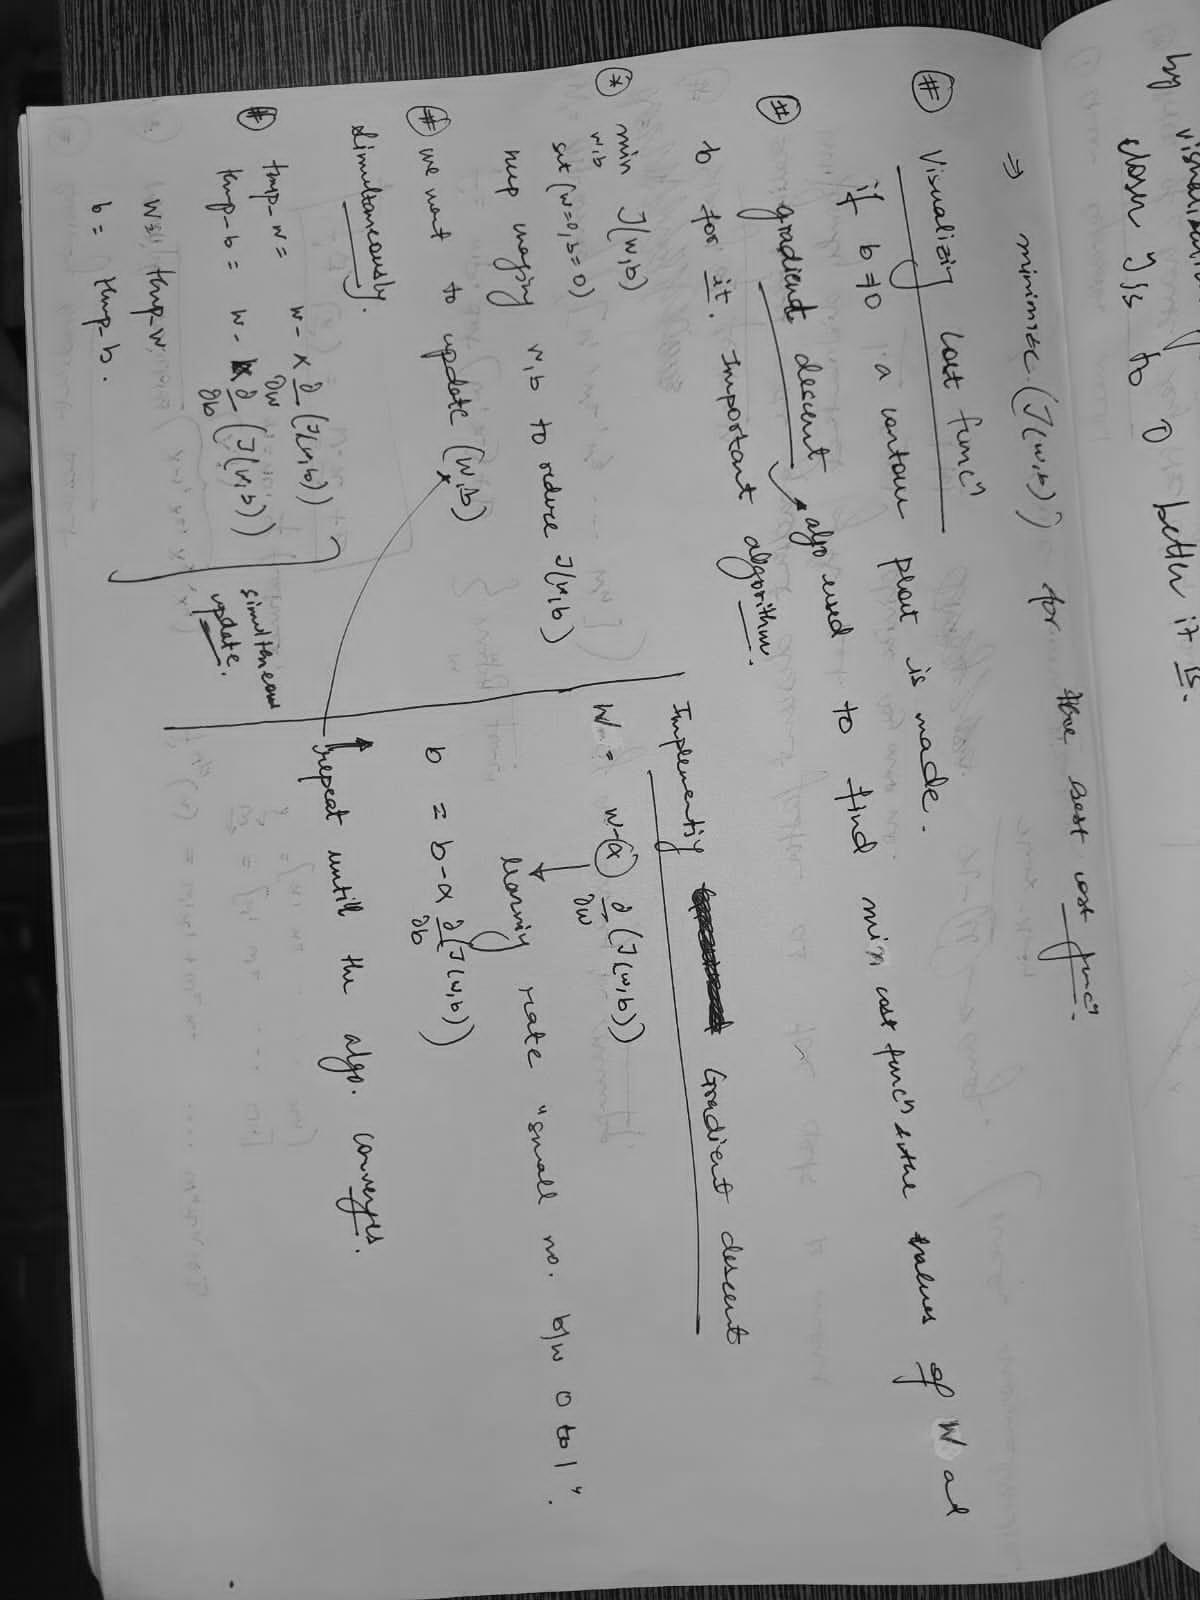 by visualising
closer y is to 0 better it is.
⇒ minimize (J(w,b)) for the best cost funcⁿ.
# Visualizig cost funcⁿ
if b≠0 : a contour plout is made.
# gradient descent → algo used to find min cost funcⁿ & the values of w ad
b for it. Important algorithm.
* min J(w,b)
w,b
set (w=0, b=0)
keep changing w,b to reduce J(w,b)
# we want to update (w,b)
simultaneously.
# tmp_w = w - α ∂/∂w (J(w,b))
tmp_b = w - α ∂/∂b (J(w,b))
w = tmp_w
b = tmp_b.
simulteneous
update.
Implementig Gradient descent
w = w - α ∂/∂w (J(w,b))
learnig rate "small no. b/w 0 to 1".
b = b - α ∂/∂b (J(w,b))
repeat untill the algo. converges.